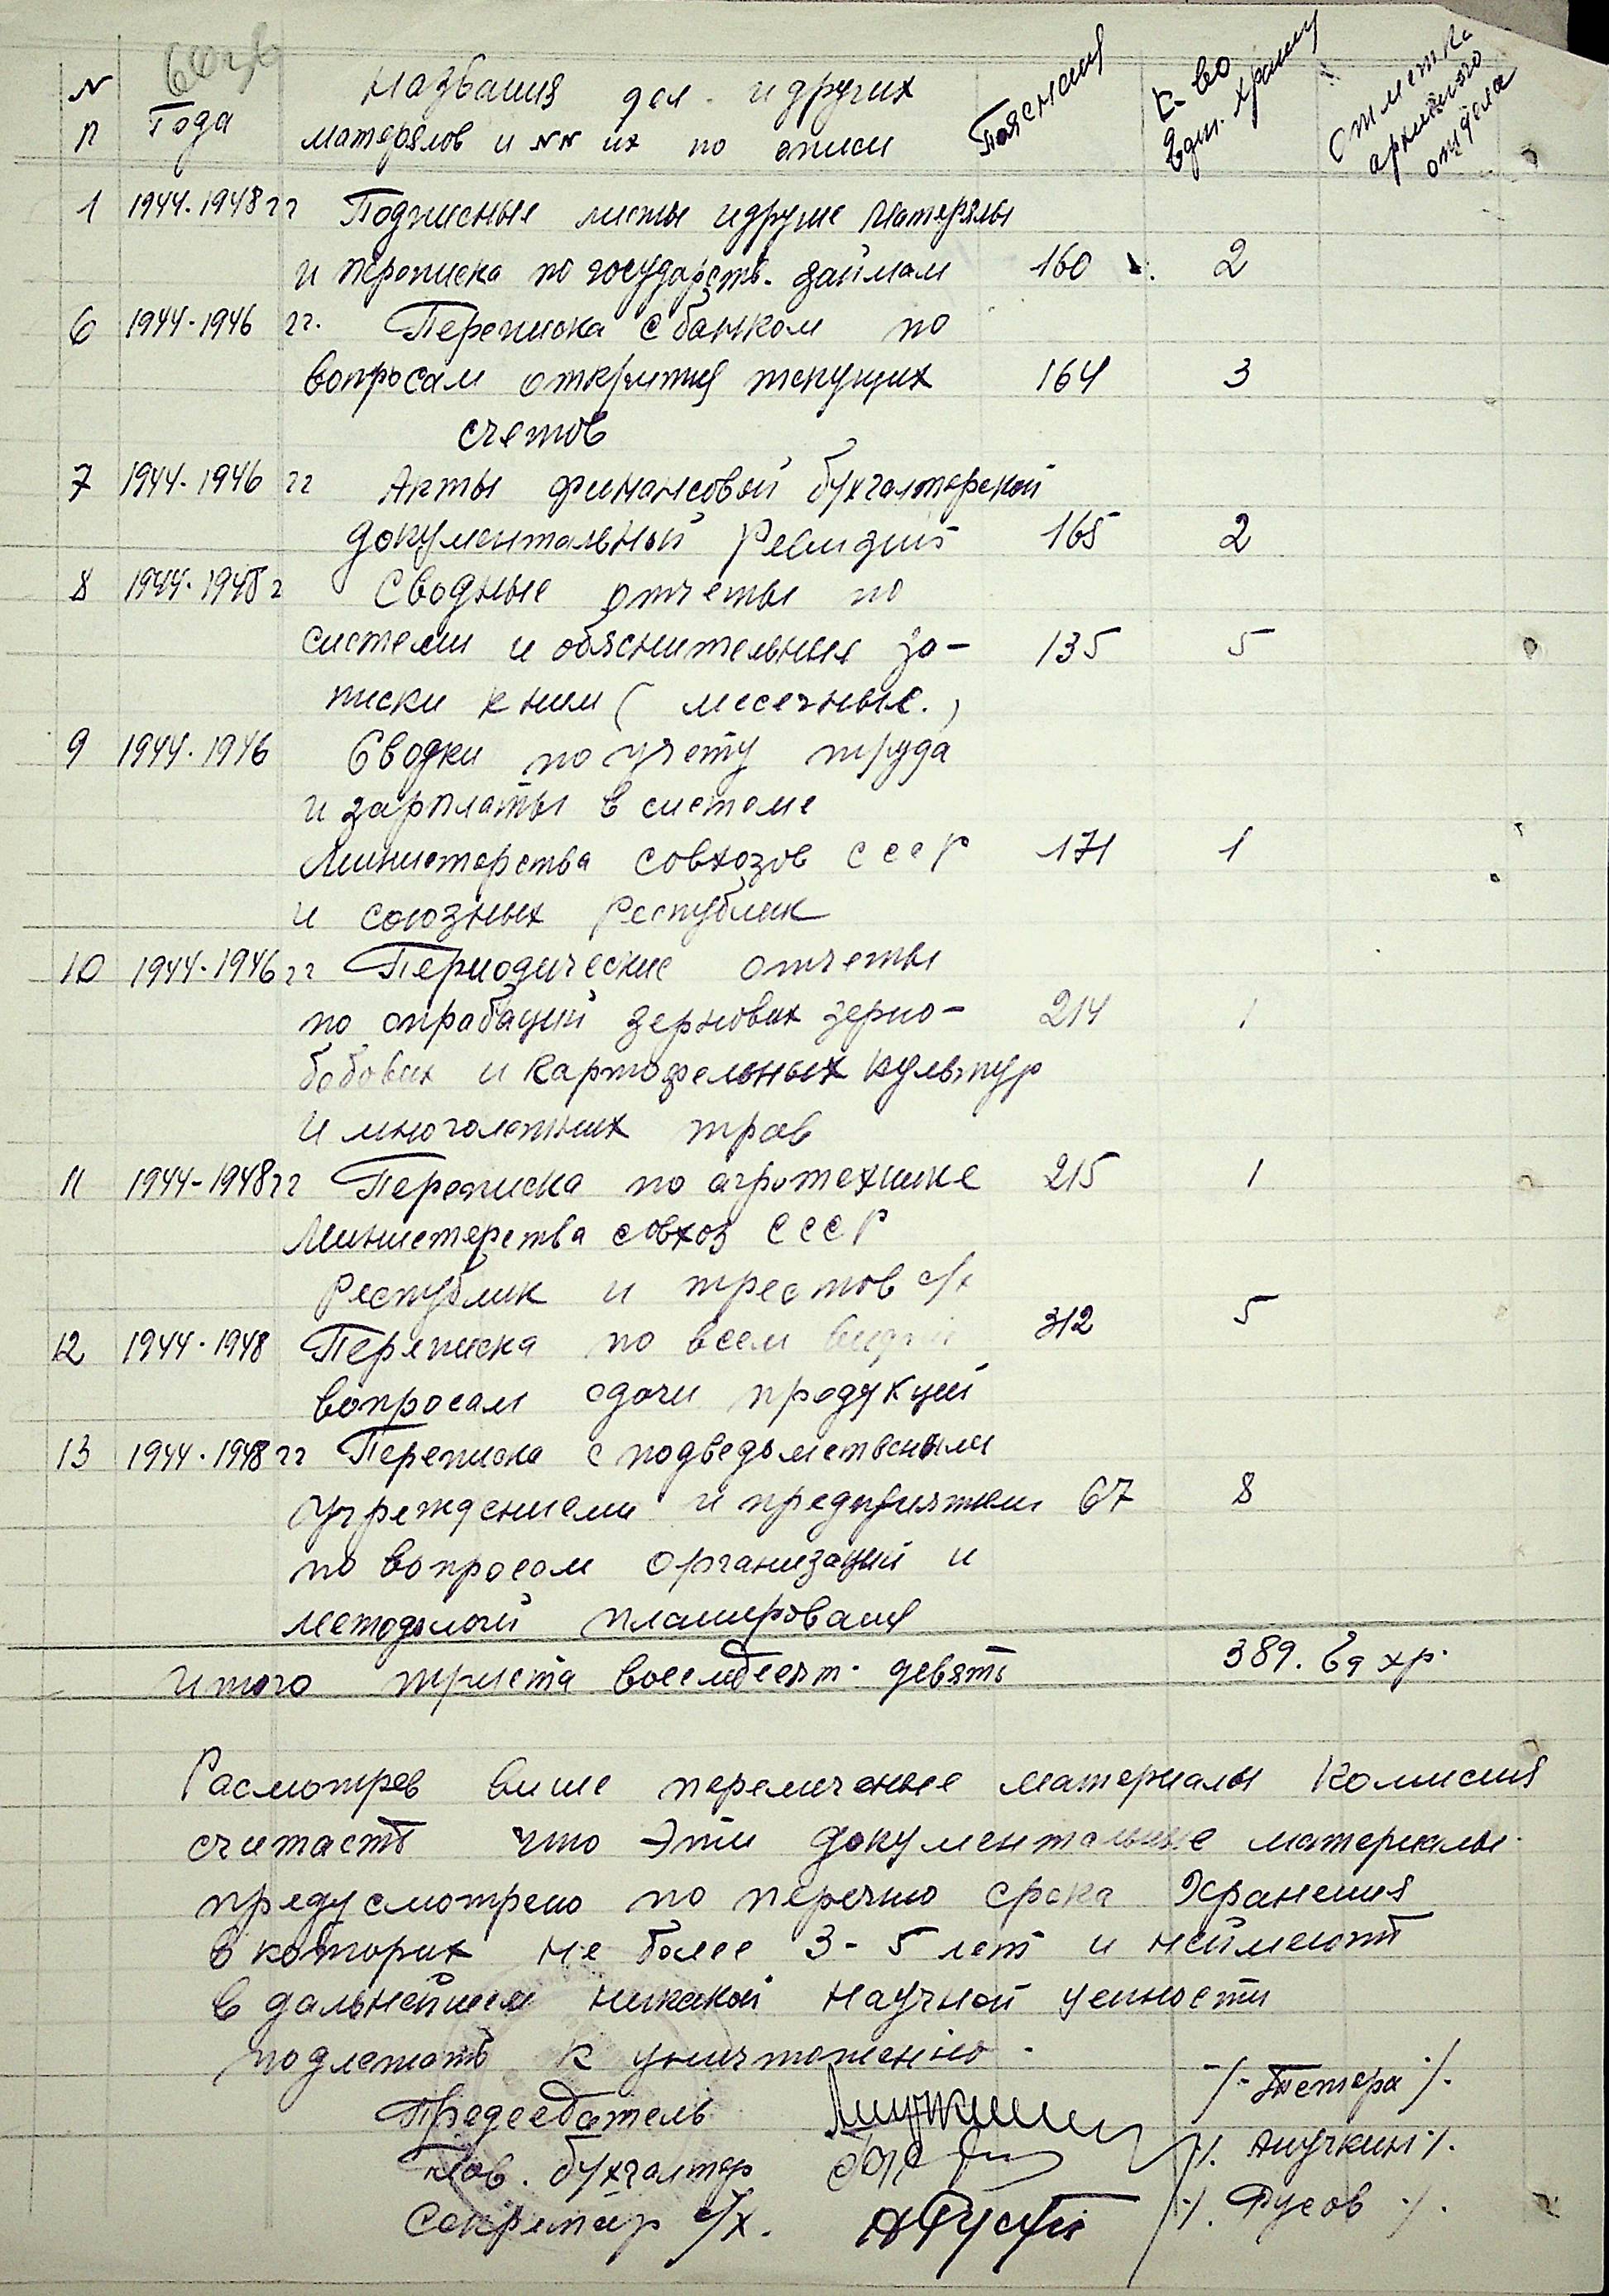 N Года Названия дел и других Пояснения К-во Отметка
п матерялов и NN их по описи Един. хранен архивного отдела
1 1944.1948 гг Подписные листы и другие матерялы
и переписка по государств. займам 160 2
6 1944-1946 гг. Переписка с банком по
вопросам открытия текущих 164 3
счетов
7 1944-1946 гг Акты финансовой бухгалтерской
документальной Ревизий 165 2
8 1944-1948 г Сводные отчеты по
системи и обяснительные за- 135 5
писки к ним (месечные.)
9 1944.1946 Сводки по учету труда
и зарплаты в системе
Министерства совхозов СССР 171 1
и союзных Республик
10 1944-1946 гг Периодические отчеты
по апрабаций зерновых зерно- 214 1
бобових и картофельных культур
и многолетних трав
11 1944-1948 гг Переписка по агротехнике 215 1
Министерства совхоз СССР
Республик и трестов с/х
12 1944.1948 Переписка по всем 312 5
вопросам сдачи продукций
13 1944.1948 гг Переписка с подведомствеными
учреждениеми и предприятиеми 67 8
по вопросам организаций и
методологий планирования
итого триста восемдесят девять 389. Ед хр.
Расмотрев више перемеченые материалы комисия
считаеть что эти документальные материалы
предусмотрено по перечню срока Хранения
в которих не более 3-5 лет и неимеють
в дальнейшем никакой научной ценности
подлежать к уничтожению.
Председатель /-Тетера/-
Глав. бухгалтер /. Анучкин/.
Секретарь с/х. /. Фусов /.